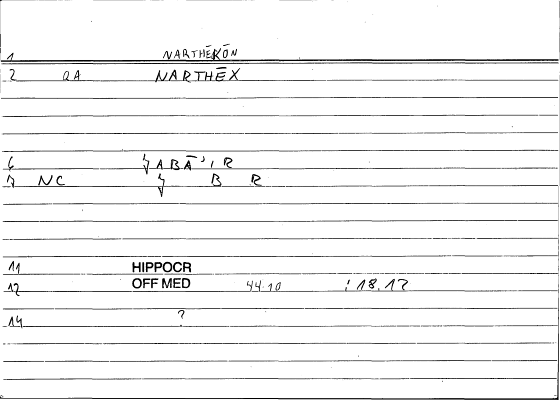 1 NARTHĒKŌN
2 QA NARTHĒX
6 ǦABĀʾIR
7 NC Ǧ B R
11 HIPPOCR
12 OFF MED 44.10 : 18.12
14 ?